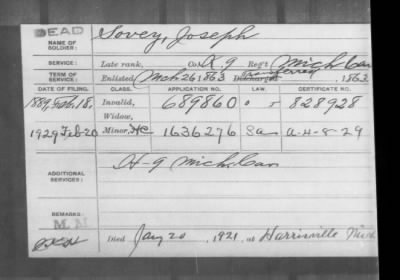 DEAD
NAME OF SOLDIER: Sovey, Joseph
SERVICE: Late rank, Co. A. 9 Reg't Mich Cav
TERM OF SERVICE: Enlisted Mch 26 1863 Discharged Transferred, 1863
DATE OF FILING. CLASS. APPLICATION NO. LAW. CERTIFICATE NO.
1889, Feb. 18, Invalid, 689860 828928
Widow,
1929 Feb-20 Minor, 1636276 a-4-8-29
ADDITIONAL SERVICES: H-9 Mich. Cav
REMARKS:
M.
Died Jany 20, 1921, at Harrisville Mich